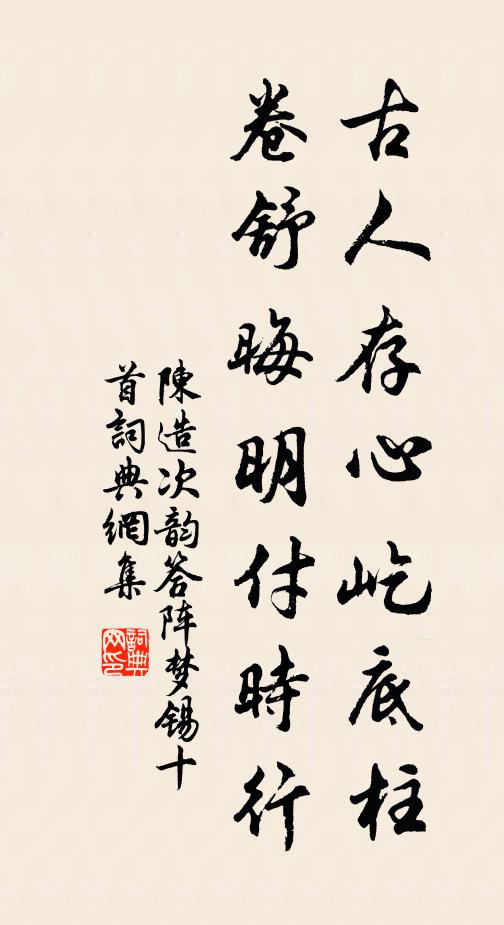 古人存心屹底柱
卷舒晦明付時行
陳造次韵答阵梦锡十
首詞典網集
詞典网印